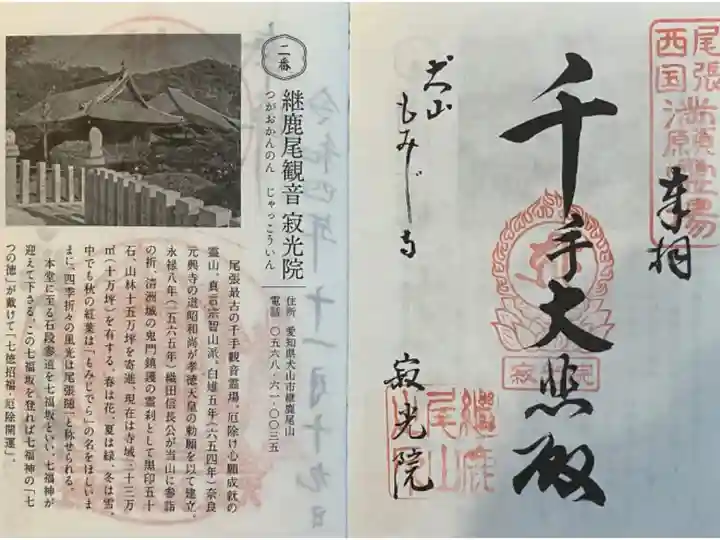 尾張
西国
霊場
奉拝
千手大悲殿
犬山
もみじ寺
寂光院
継鹿
尾山
二番
継鹿尾観音 寂光院
つがおかんのん じゃっこういん
住所 愛知県犬山市継鹿尾山
電話 〇五六八・六一・〇〇三五
尾張最古の千手観音霊場、厄除け心願成就の
霊山。真言宗智山派。白雉五年(六五四年)奈良
元興寺の道昭和尚が孝徳天皇の勅願を以て建立。
永禄八年(一五六五年)織田信長公が当山に参詣
の折、清洲城の鬼門鎮護の霊刹として黒印五十
石、山林十五万坪を寄進。現在は寺域三十三万
㎡(十万坪)を有する。春は花、夏は緑、冬は雪。
中でも秋の紅葉は「もみじでら」の名をほしいま
まに、四季折々の風光は尾張随一と称せられる。
本堂に至る石段参道を七福坂といい、七福神が
迎えて下さる。この七福坂を登れば七福神の「七
つの徳」が戴けて「七徳招福・厄除開運」。
令和四年十一月十九日